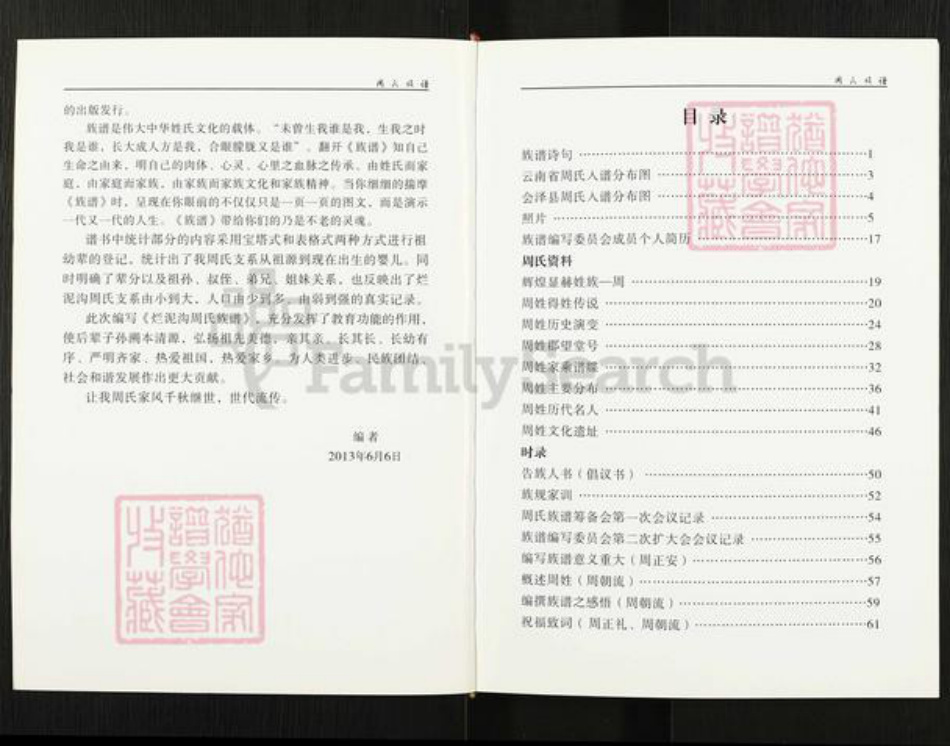 周氏族谱
的出版发行。
族谱是伟大中华姓氏文化的载体。“未曾生我谁是我，生我之时
我是谁，长大成人方是我，合眼朦胧又是谁”。翻开《族谱》知自己
生命之由来，明自己的肉体、心灵、心里之血脉之传承。由姓氏而家
庭，由家庭而家族，由家族而家族文化和家族精神。当你细细的揣摩
《族谱》时，呈现在你眼前的不仅仅只是一页一页的图文，而是演示
一代又一代的人生。《族谱》带给你们的乃是不老的灵魂。
谱书中统计部分的内容采用宝塔式和表格式两种方式进行祖
幼辈的登记，统计出了我周氏支系从祖源到现在出生的婴儿。同
时明确了辈分以及祖孙、叔侄、弟兄、姐妹关系，也反映出了烂
泥沟周氏支系由小到大，人口由少到多，由弱到强的真实记录。
此次编写《烂泥沟周氏族谱》，充分发挥了教育功能的作用，
使后辈子孙溯本清源，弘扬祖先美德，亲其亲、长其长、长幼有
序、严明齐家、热爱祖国，热爱家乡，为人类进步、民族团结、
社会和谐发展作出更大贡献。
让我周氏家风千秋继世，世代流传。
编者
2013年6月6日
周氏族谱
目录
族谱诗句 1
云南省周氏人谱分布图 3
会泽县周氏人谱分布图 4
照片 5
族谱编写委员会成员个人简历 17
周氏资料
辉煌显赫姓族—周 19
周姓得姓传说 20
周姓历史演变 24
周姓郡望堂号 28
周姓家乘谱牒 32
周姓主要分布 36
周姓历代名人 41
周姓文化遗址 46
时录
告族人书（倡议书） 50
族规家训 52
周氏族谱筹备会第一次会议记录 54
族谱编写委员会第二次扩大会会议记录 55
编写族谱意义重大（周正安） 56
概述周姓（周朝流） 57
编撰族谱之感悟（周朝流） 59
祝福致词（周正礼、周朝流） 61
FamilySearch